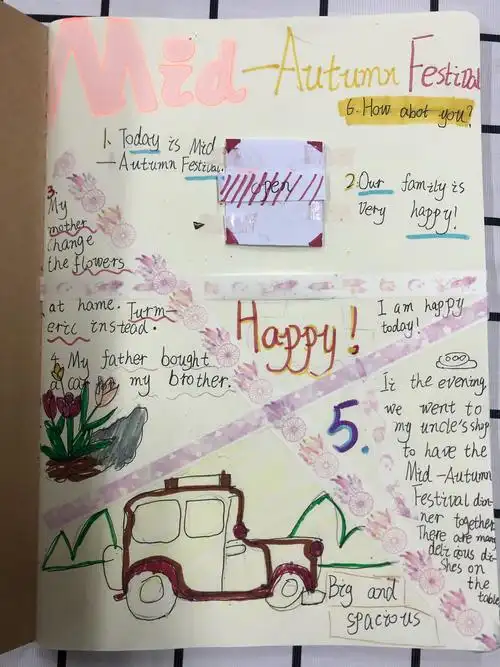 Mid-Autumn Festival
6. How abot you?
1. Today is Mid
-Autumn Festival.
open
2. Our family is
very happy!
3.
My
mother
change
the flowers
at home. Turm-
eric instead.
Happy!
I am happy
today!
4. My father bought
a car for my brother.
5.
It the evening,
we went to
my uncle's shop
to have the
Mid-Autumn
Festival din
ner together.
There are many
delicious di-
shes on
the
table.
Big and
spacious